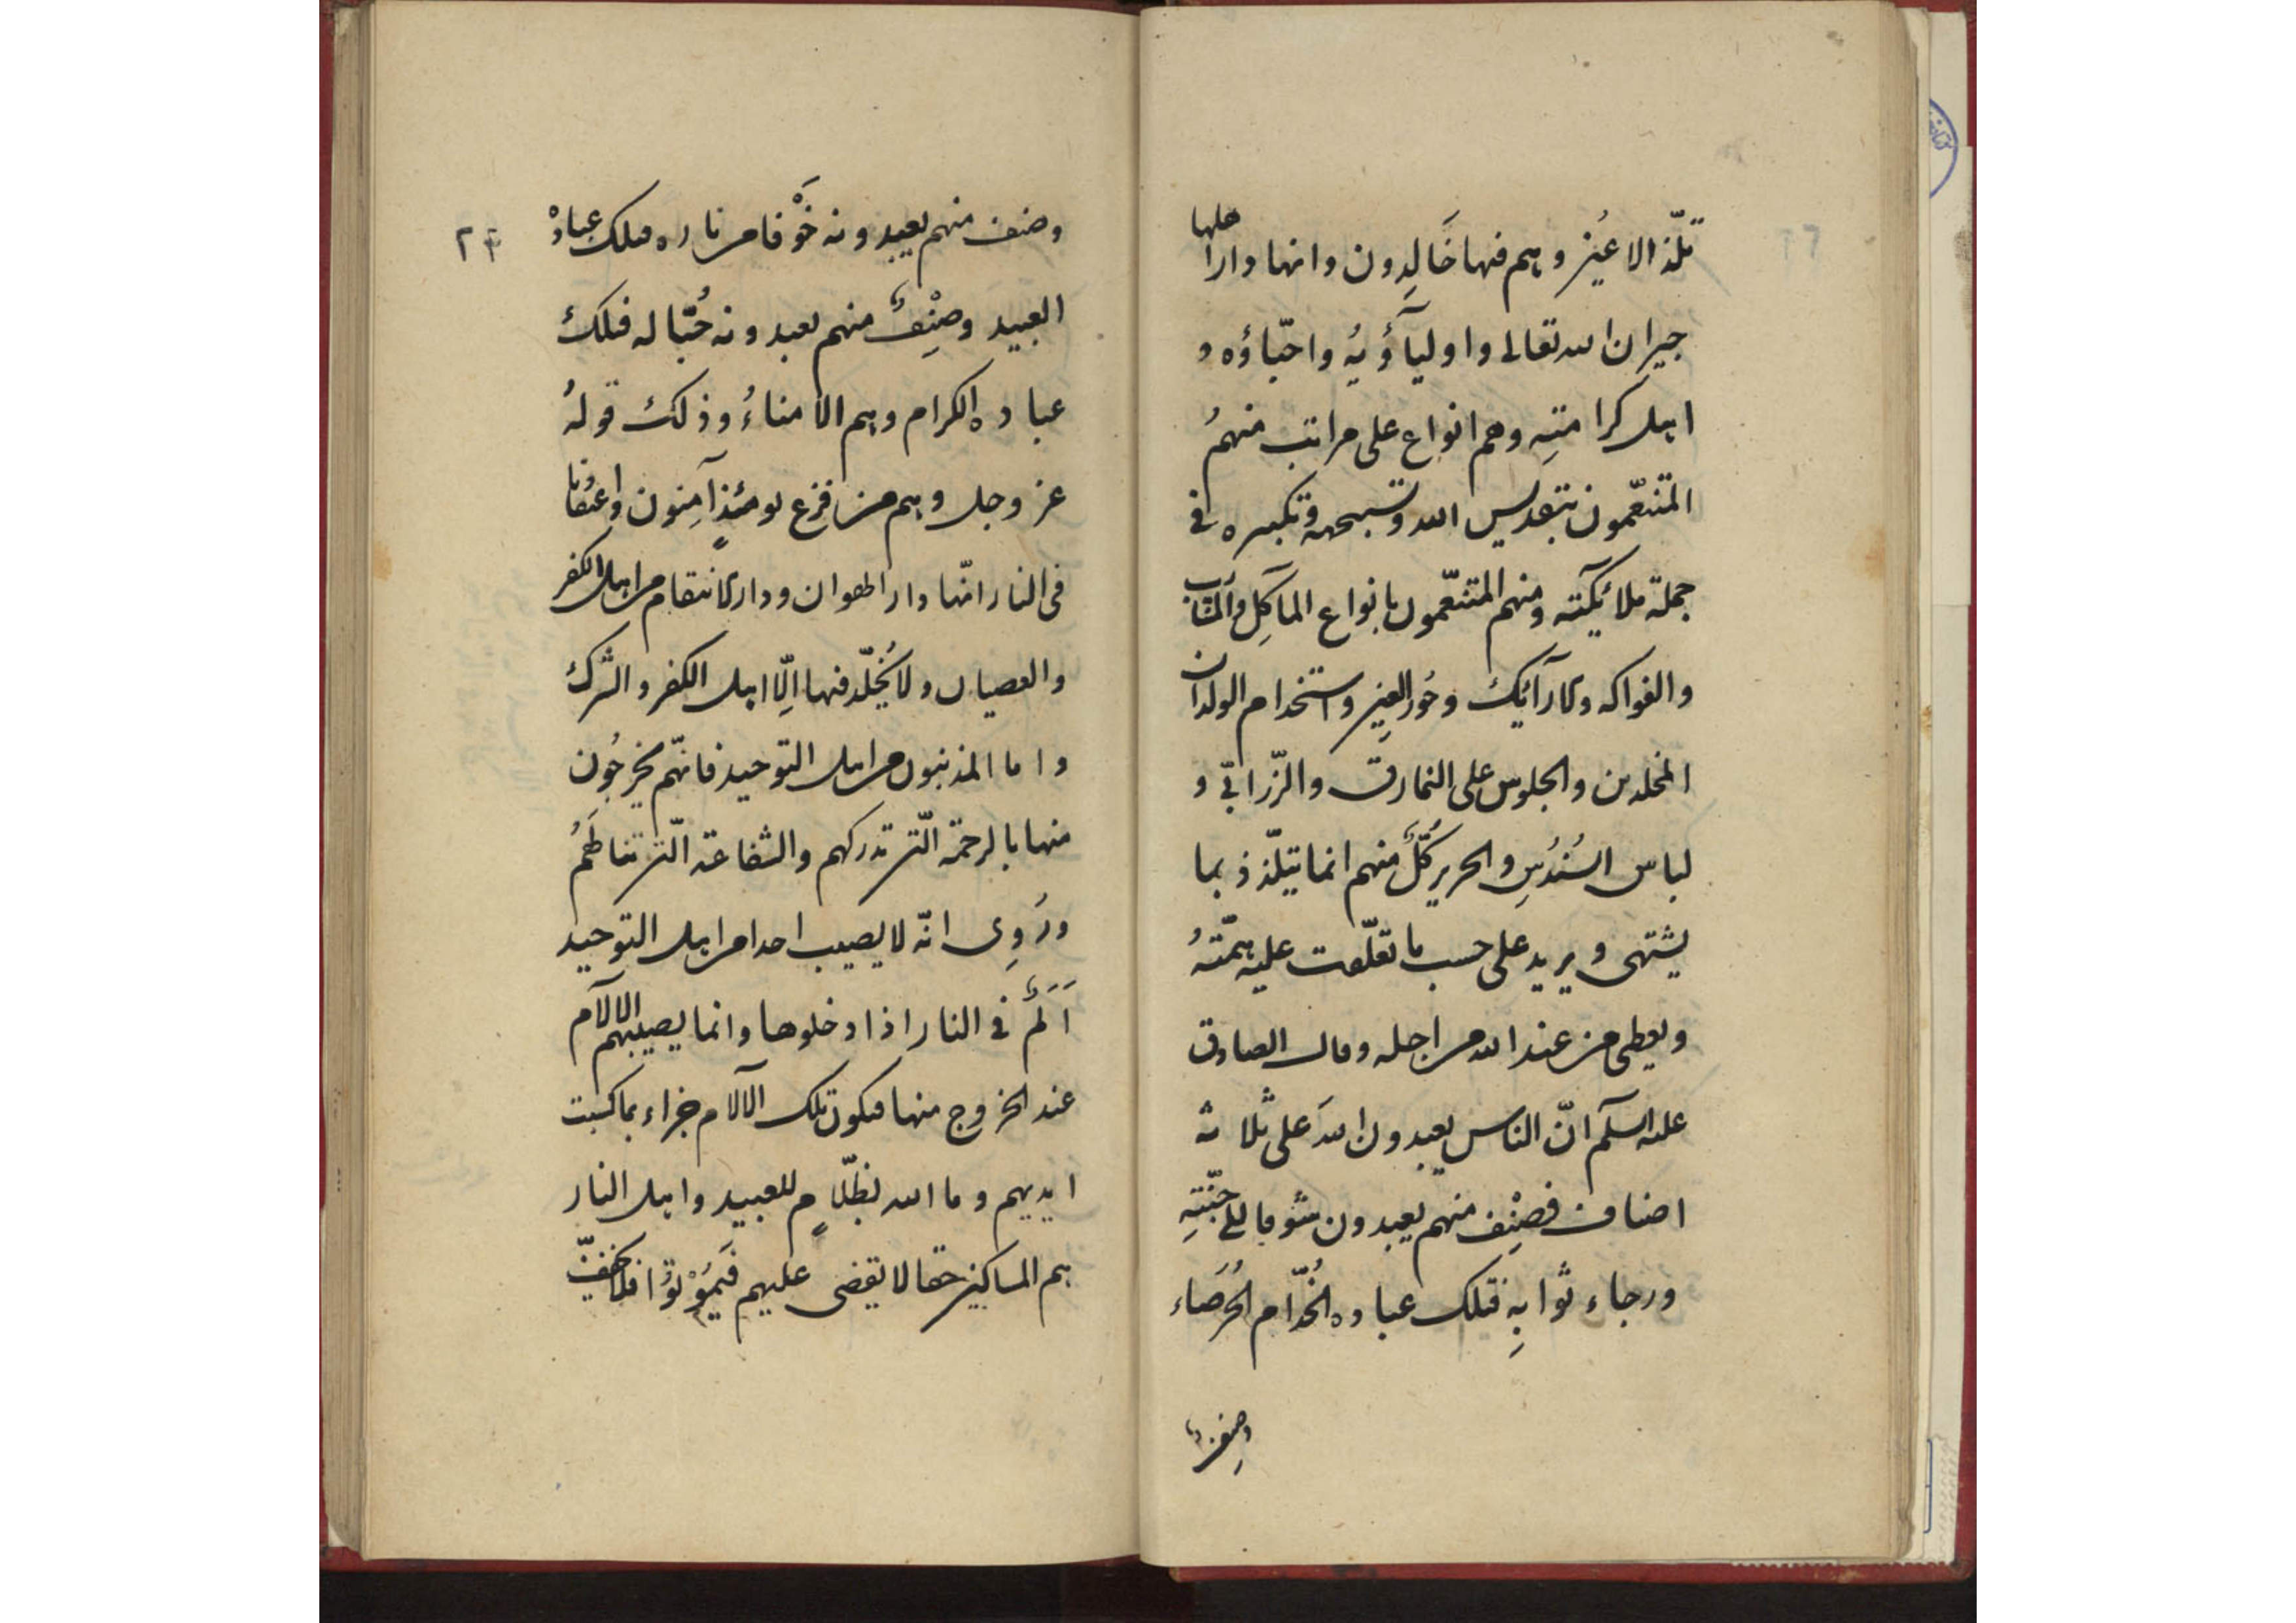 تلّذ الاعُين وهم فيها خَالِدون وانها دارا اهلها
جيِران الله تعالى واولياَؤُيهُ واحبّاؤه و
اهل كرامتهِ وهم انواع على مراتب منهمُ
المتنعّمون بتقديس الله وتسبيحه وتكبيره فى
جملة ملائيكته ومنهم المتنعّمون بانواع المآكِل والمشارب
والفواكه والارآئيك وحُور العِين واستخدام الولدان
المخلدين والجلوس على النمارق والزّرابّى و
لباس السُندُسِ والحرير كُلَّ منهم انما يتلّذذ بما
يشتهى ويريد على حسب ما تعلّقت عليه همّتهُ
ويعطى من عند الله من اجله وقال الصادق
عليه السلم انّ الناس يعبدون اللهَ على ثلاثة
اصناف فصِنِف منهم يعبدون شوقا الى جنّتهِ
ورجاء ثوابِهِ فتلك عباده الخُدّام الحُرَصاء
وصنف
وصنف منهم يعبدونه خَوْفا من ناره فتلك عبادة
العبيد وصِنِفٌ منهم يعبدونه حُبّا له فتلك
عباده الكرام وهم الامناءُ وذلك قولهُ
عز وجل وهم من فزع يومئذٍ آمِنون واعتقادنا
فى النار انّها دار الهوان ودار الانتقام من اهل الكفر
والعصيان ولا يُخلّد فيها اِلّا اهل الكفر والشرك
واما المذنبون من اهل التوحيد فانهّم يخرجُون
منها بالرحمة الّتى تدركهم والشفاعة الّتى تنالَهُمُ
ورُوِى انّه لا يصيب احدا من اهل التوحيد
اَلَمٌ فى النار اذا دخلوها وانما يصيبهم الآلام
عند الخروج منها فيكون تلك الآلام جزاء بما كسبت
ايديهم وما الله بظلّامٍ للعبيد واهل النار
هم المساكين حقا لا يقضى عليهم فَيَمُوْتُوُا فلا يخفّف
٢۴